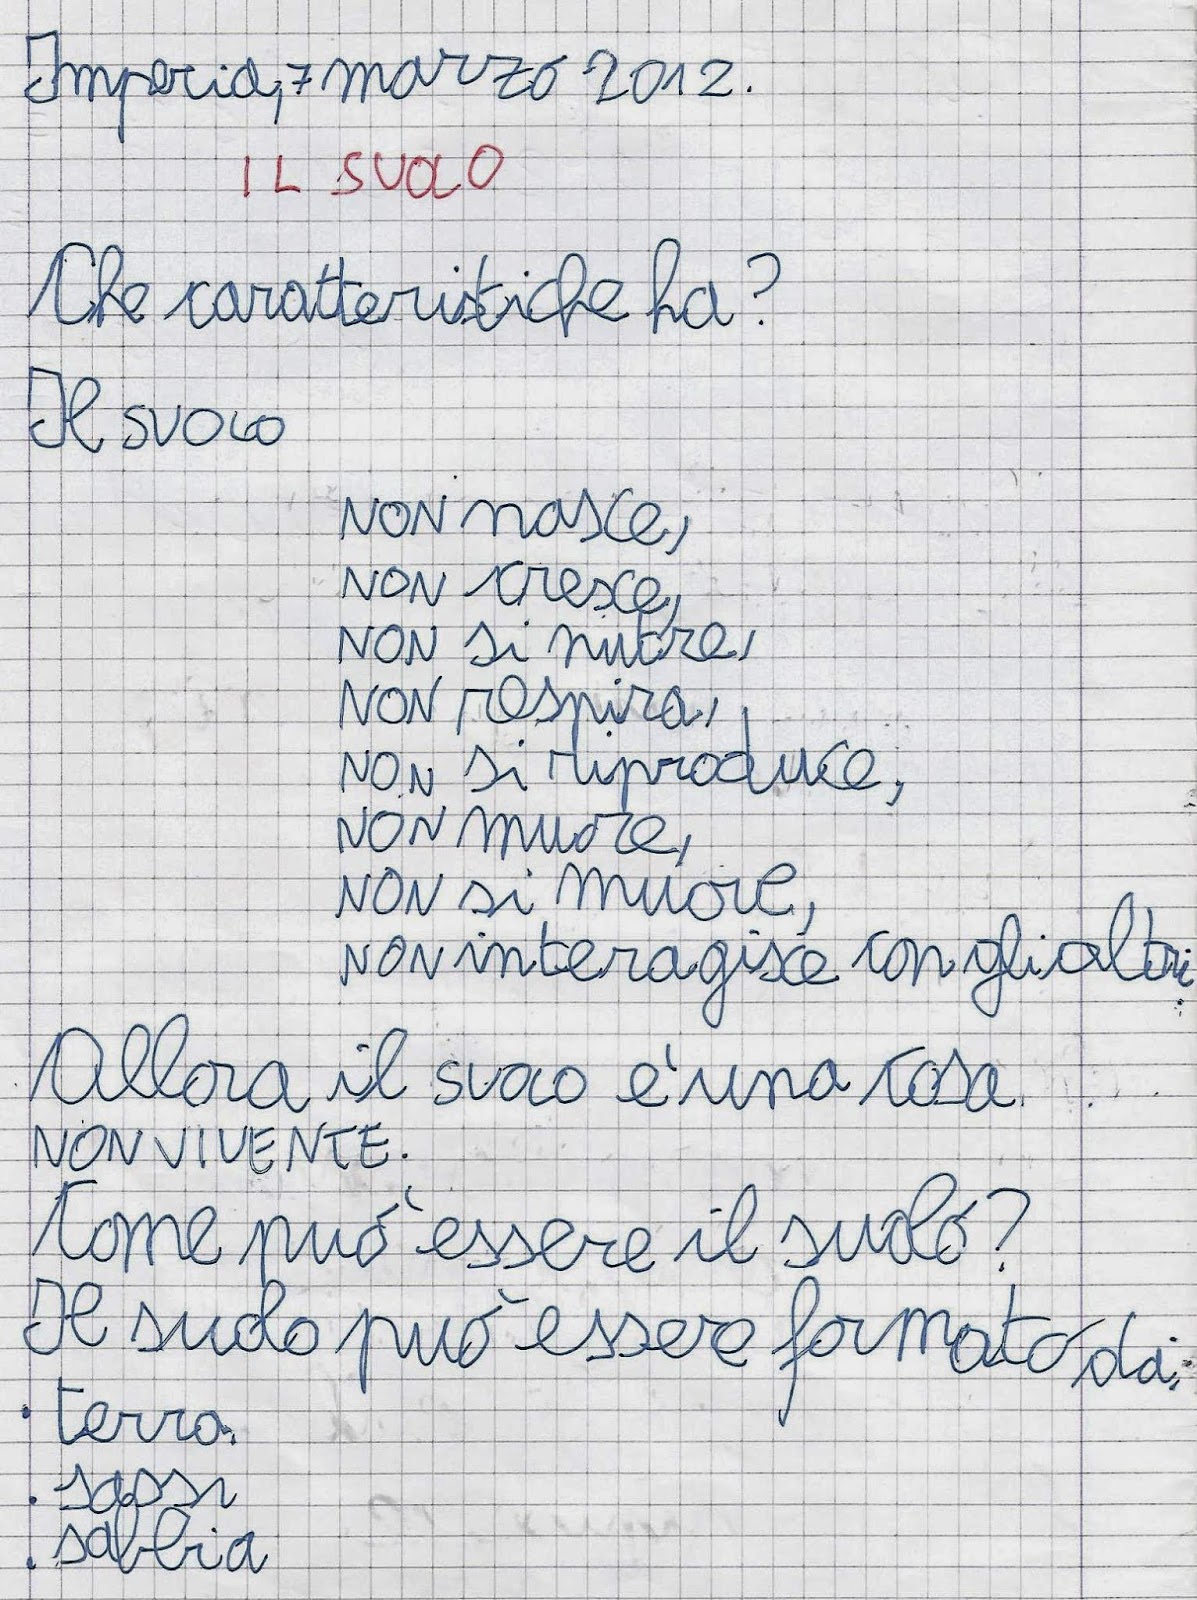 Imperia, 7 marzo 2012.
IL SUOLO
Che caratteristiche ha?
Il SUOLO
NON nasce,
NON cresce,
NON si nutre,
NON respira,
NON si riproduce,
NON muore,
NON si muore,
NON interagisce con gli altri.
Allora il suolo è una cosa
NON VIVENTE.
Come può essere il suolo?
Il suolo può essere formato da:
. terra
. sassi
. sabbia